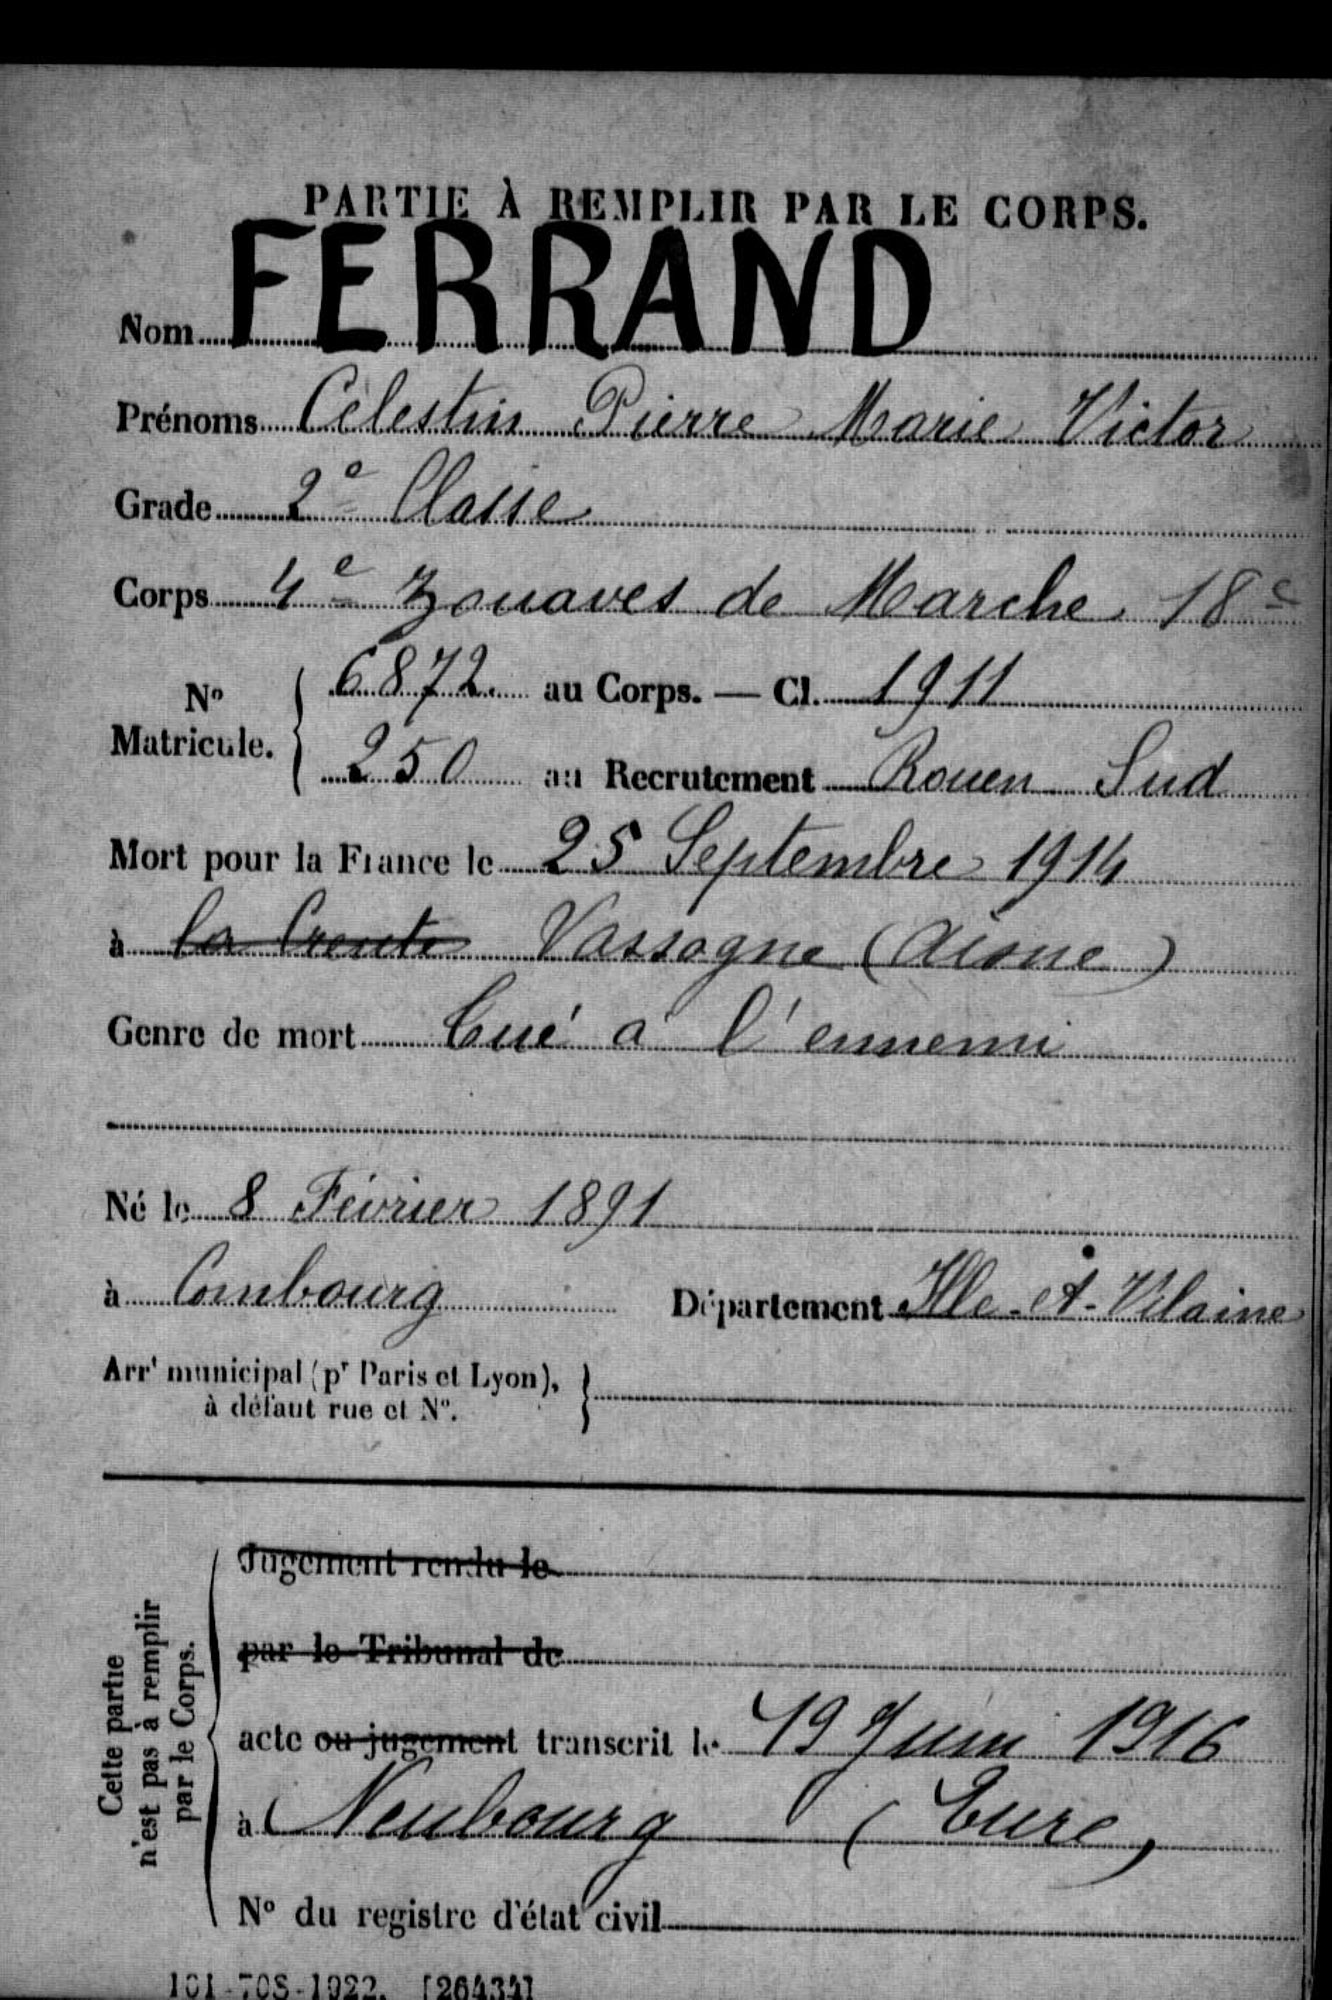 PARTIE À REMPLIR PAR LE CORPS.
Nom FERRAND
Prénoms Célestin Pierre Marie Victor
Grade 2e Classe
Corps 4e Zouaves de Marche 18e
No Matricule. { 6872 au Corps. — Cl. 1911
250 au Recrutement Rouen Sud
Mort pour la France le 25 Septembre 1914
à la Creute Vassogne (Aisne)
Genre de mort Tué à l'ennemi
Né le 8 Février 1891
à Combourg Département Ille-et-Vilaine
Arrt municipal (pr Paris et Lyon),
à défaut rue et No.
Cette partie
n'est pas à remplir
par le Corps.
Jugement rendu le
par le Tribunal de
acte ou jugement transcrit le 19 Juin 1916
à Neubourg (Eure)
No du registre d'état civil
101-708-1922. [26434]